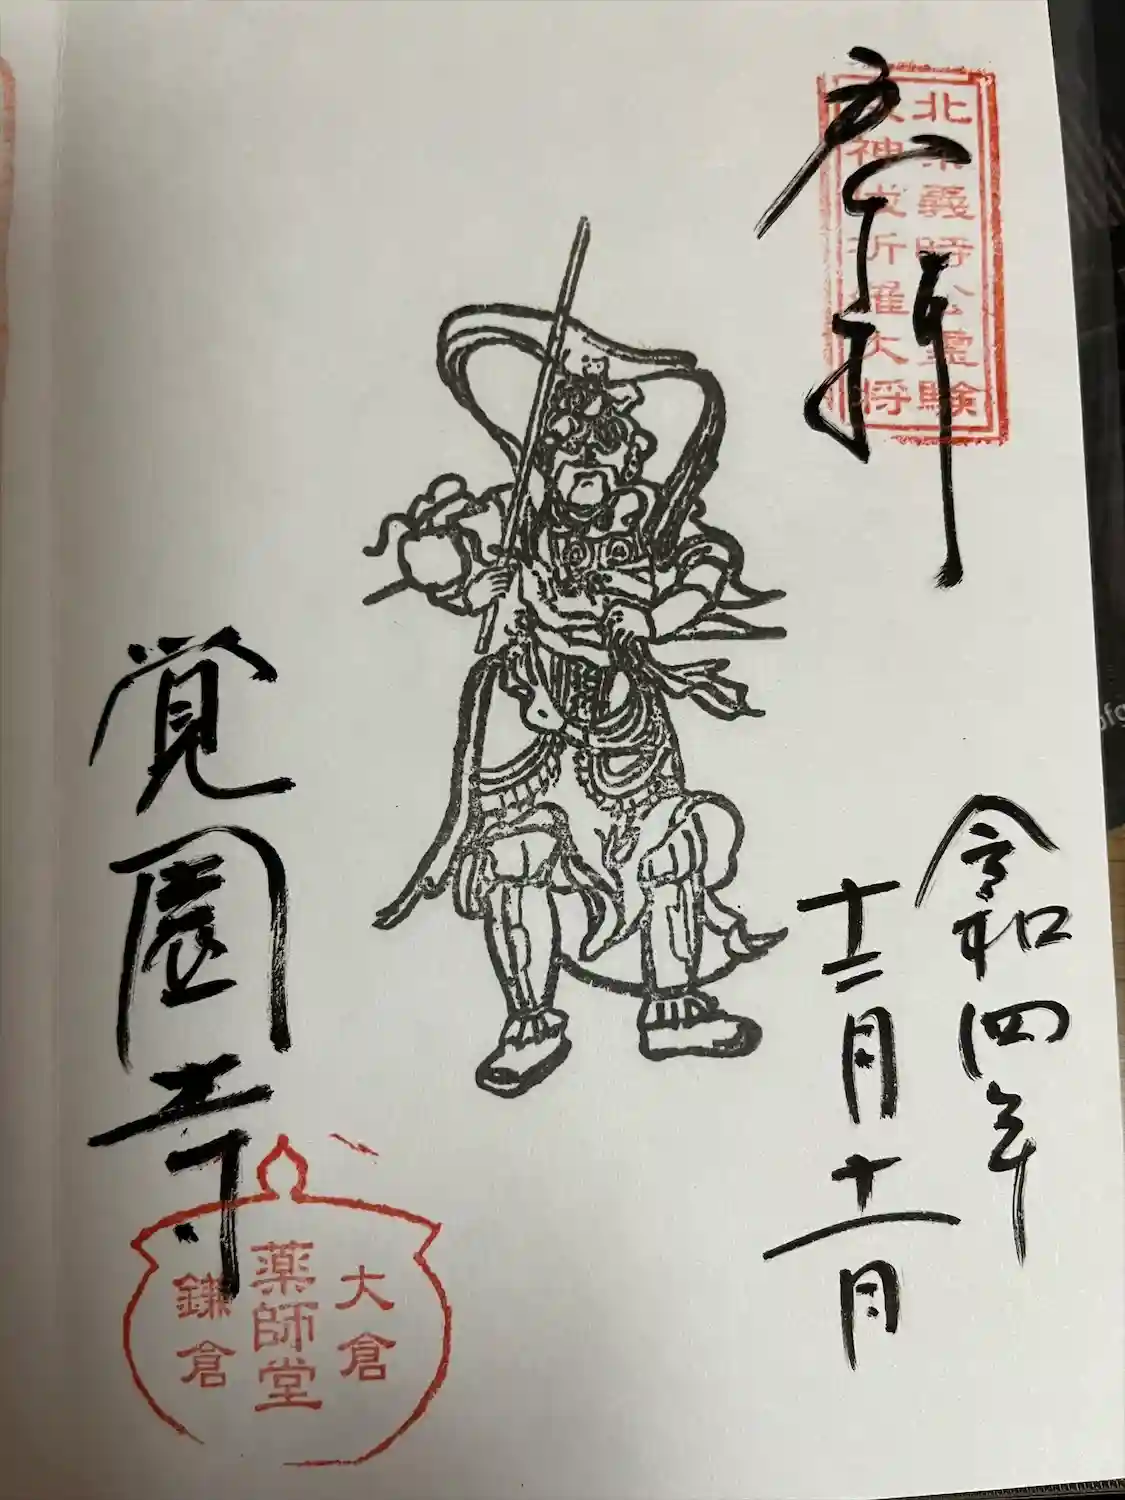 参拝
北条義時公霊験
神伐折羅大将
令和四年
十二月十一日
覚園寺
大倉
薬師堂
鎌倉